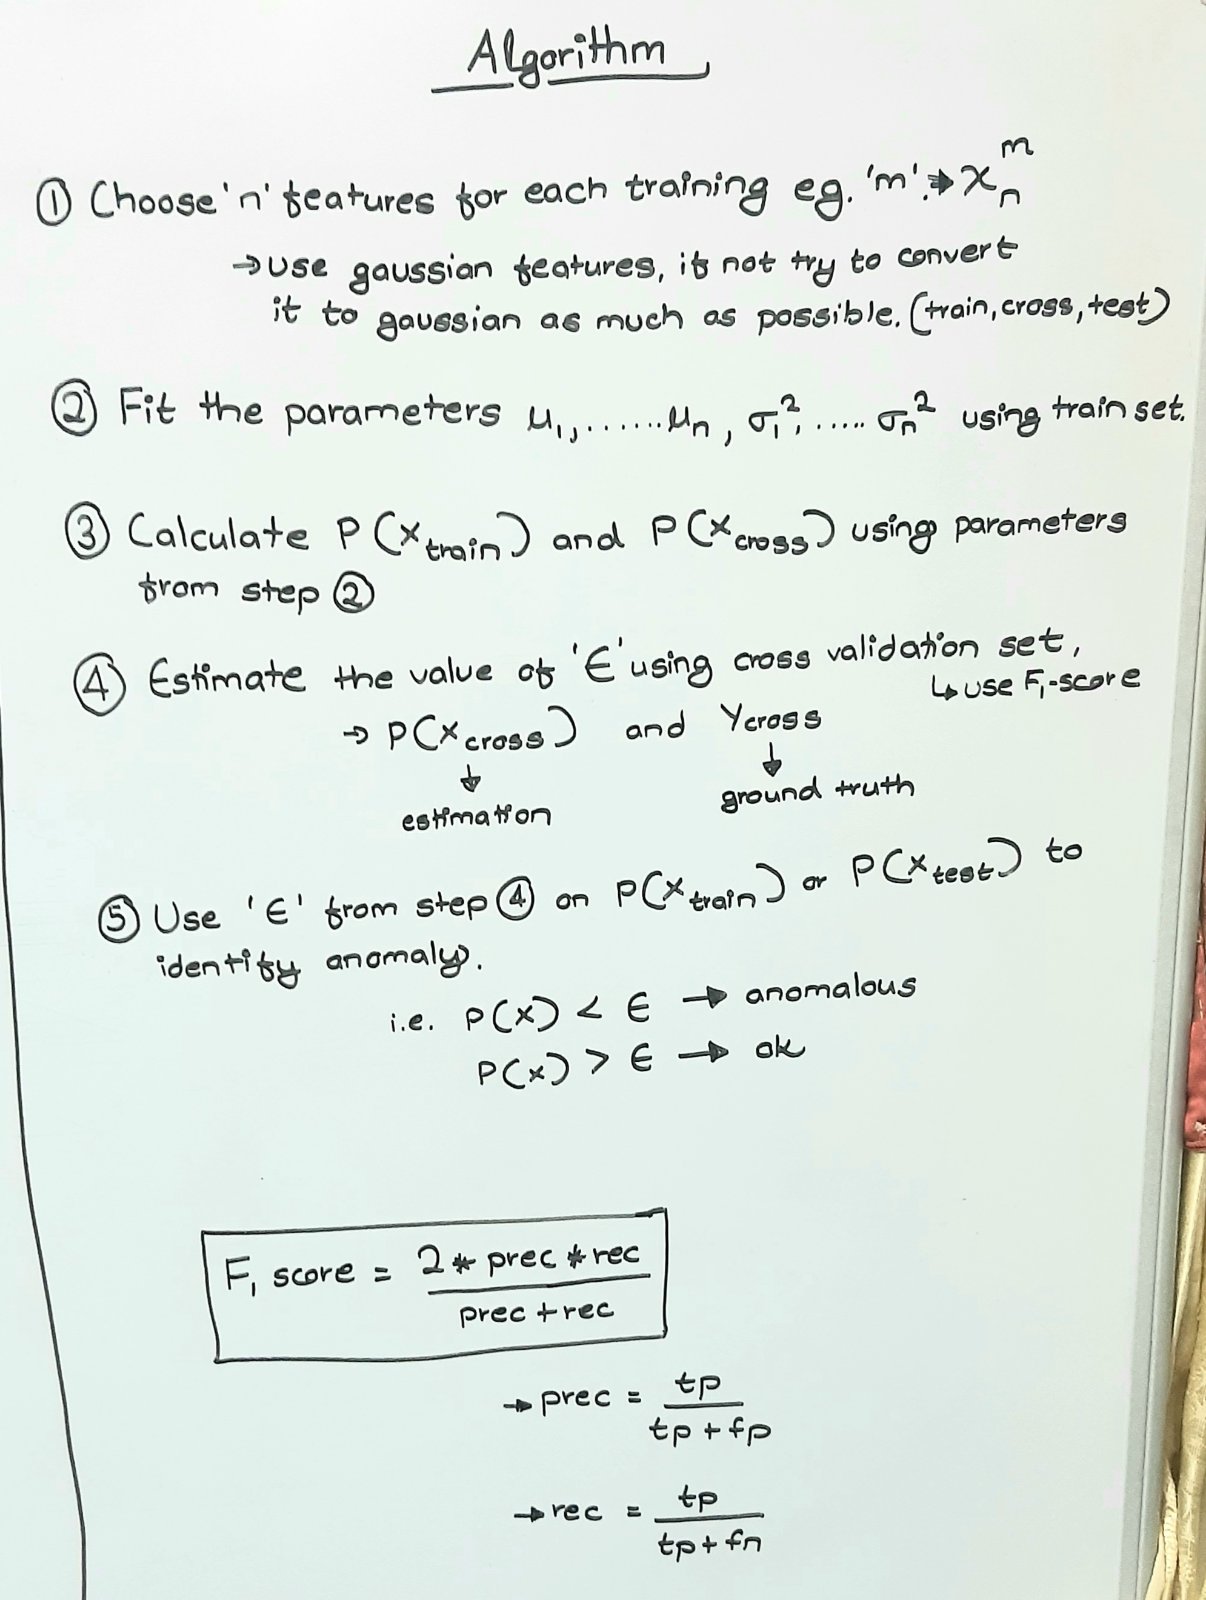 Algorithm
① Choose 'n' features for each training eg. 'm'. → xₙᵐ
→ use gaussian features, if not try to convert
it to gaussian as much as possible. (train, cross, test)
② Fit the parameters μ₁, ...... μₙ, σ₁², ..... σₙ² using train set.
③ Calculate P(x train) and P(x cross) using parameters
from step ②
④ Estimate the value of 'ϵ' using cross validation set,
↳ use F₁-score
→ P(x cross) and Ycross
↓ ↓
estimation ground truth
⑤ Use 'ϵ' from step ④ on P(x train) or P(x test) to
identify anomaly.
i.e. P(x) < ϵ → anomalous
P(x) > ϵ → ok
F₁ score = 2 * prec * rec
prec + rec
→ prec = tp
tp + fp
→ rec = tp
tp + fn